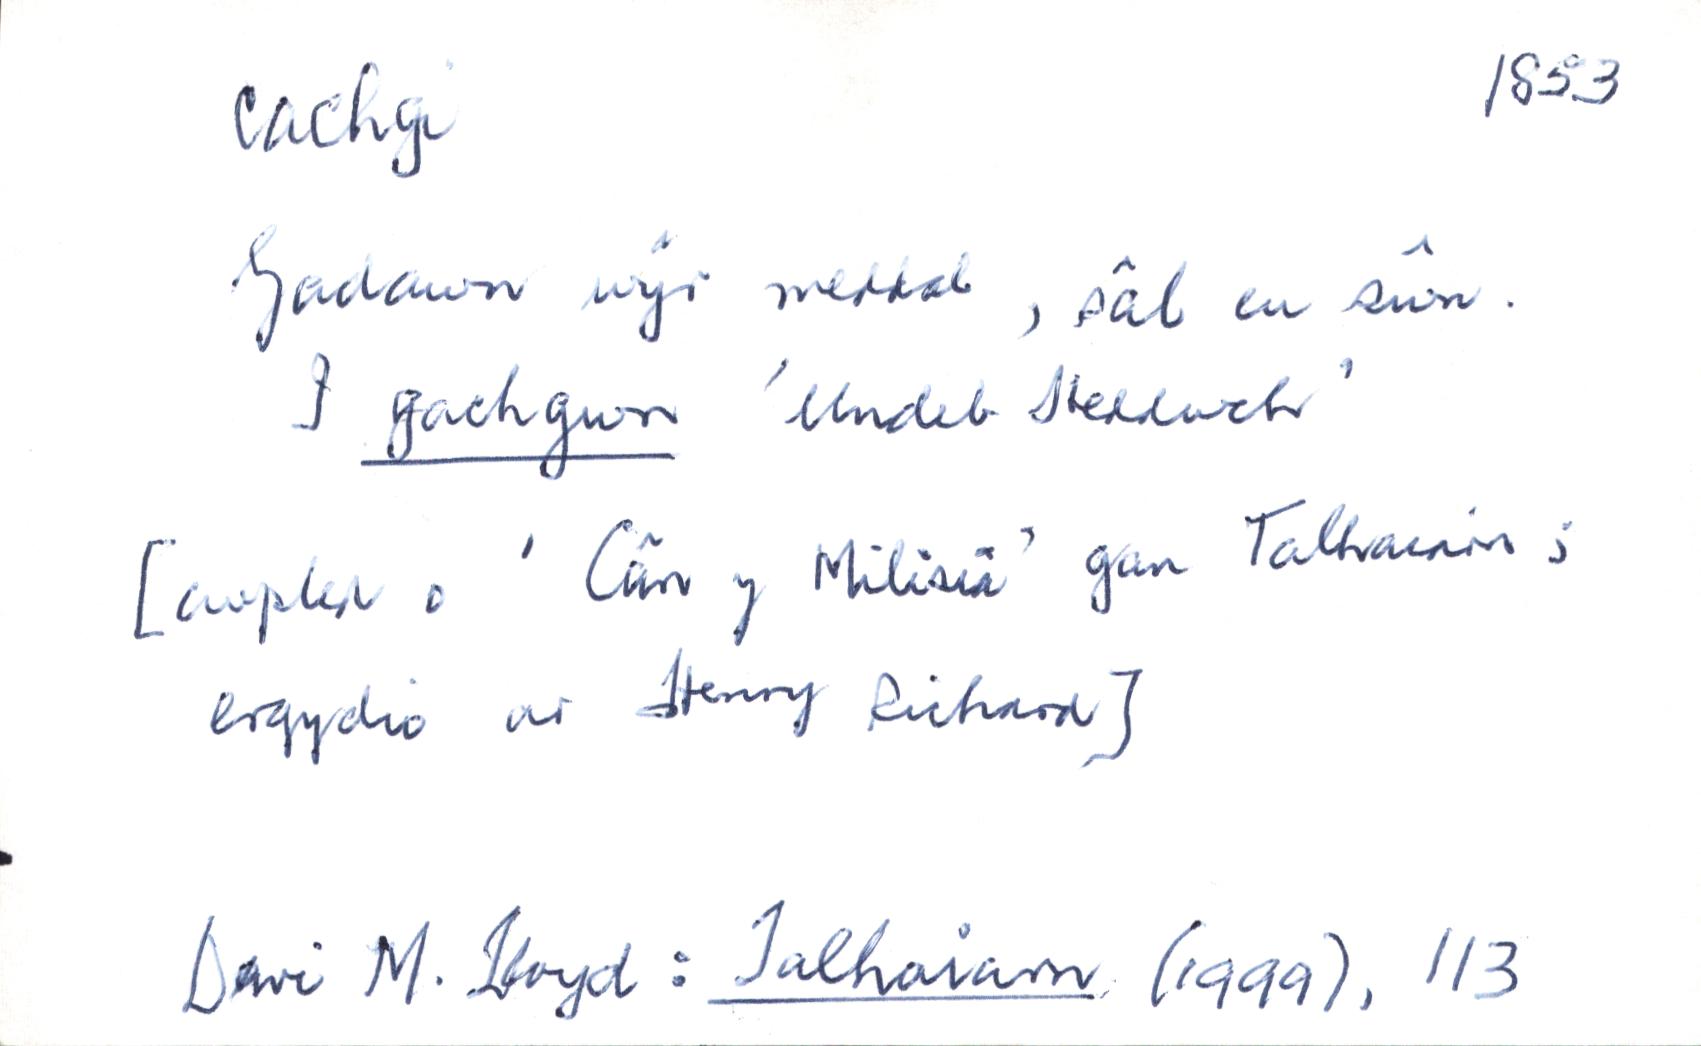 cachgi 1853
Gadawn wŷr meddal, sâl eu sŵn.
I gachgwn 'Undeb Heddwch'
[cwpled o 'Cân y Milisia' gan Talhaiarn;
ergydio ar Henry Richard]
Dewi M. Lloyd: Talhaiarn (1999), 113